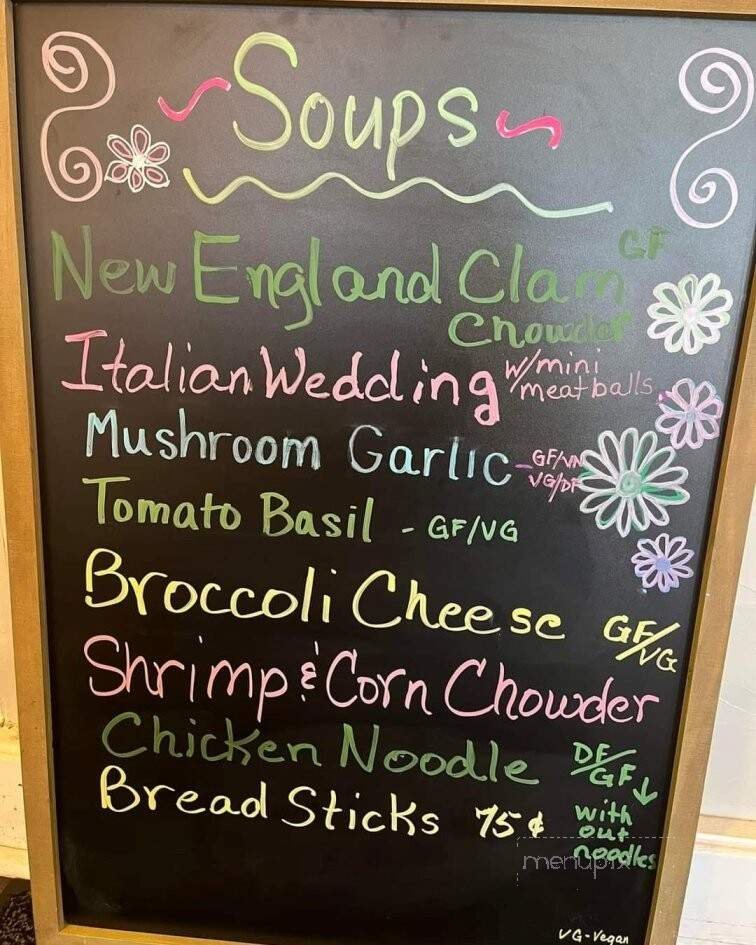 ~ Soups ~
New England Clam GF
Chowder
Italian Wedding w/mini
meatballs
Mushroom Garlic - GF/VN
VG/DF
Tomato Basil - GF/VG
Broccoli Cheese GF/VG
Shrimp & Corn Chowder
Chicken Noodle DF/GF ↓
with
out
noodles
Bread Sticks 75¢
menupix
VG-Vegan